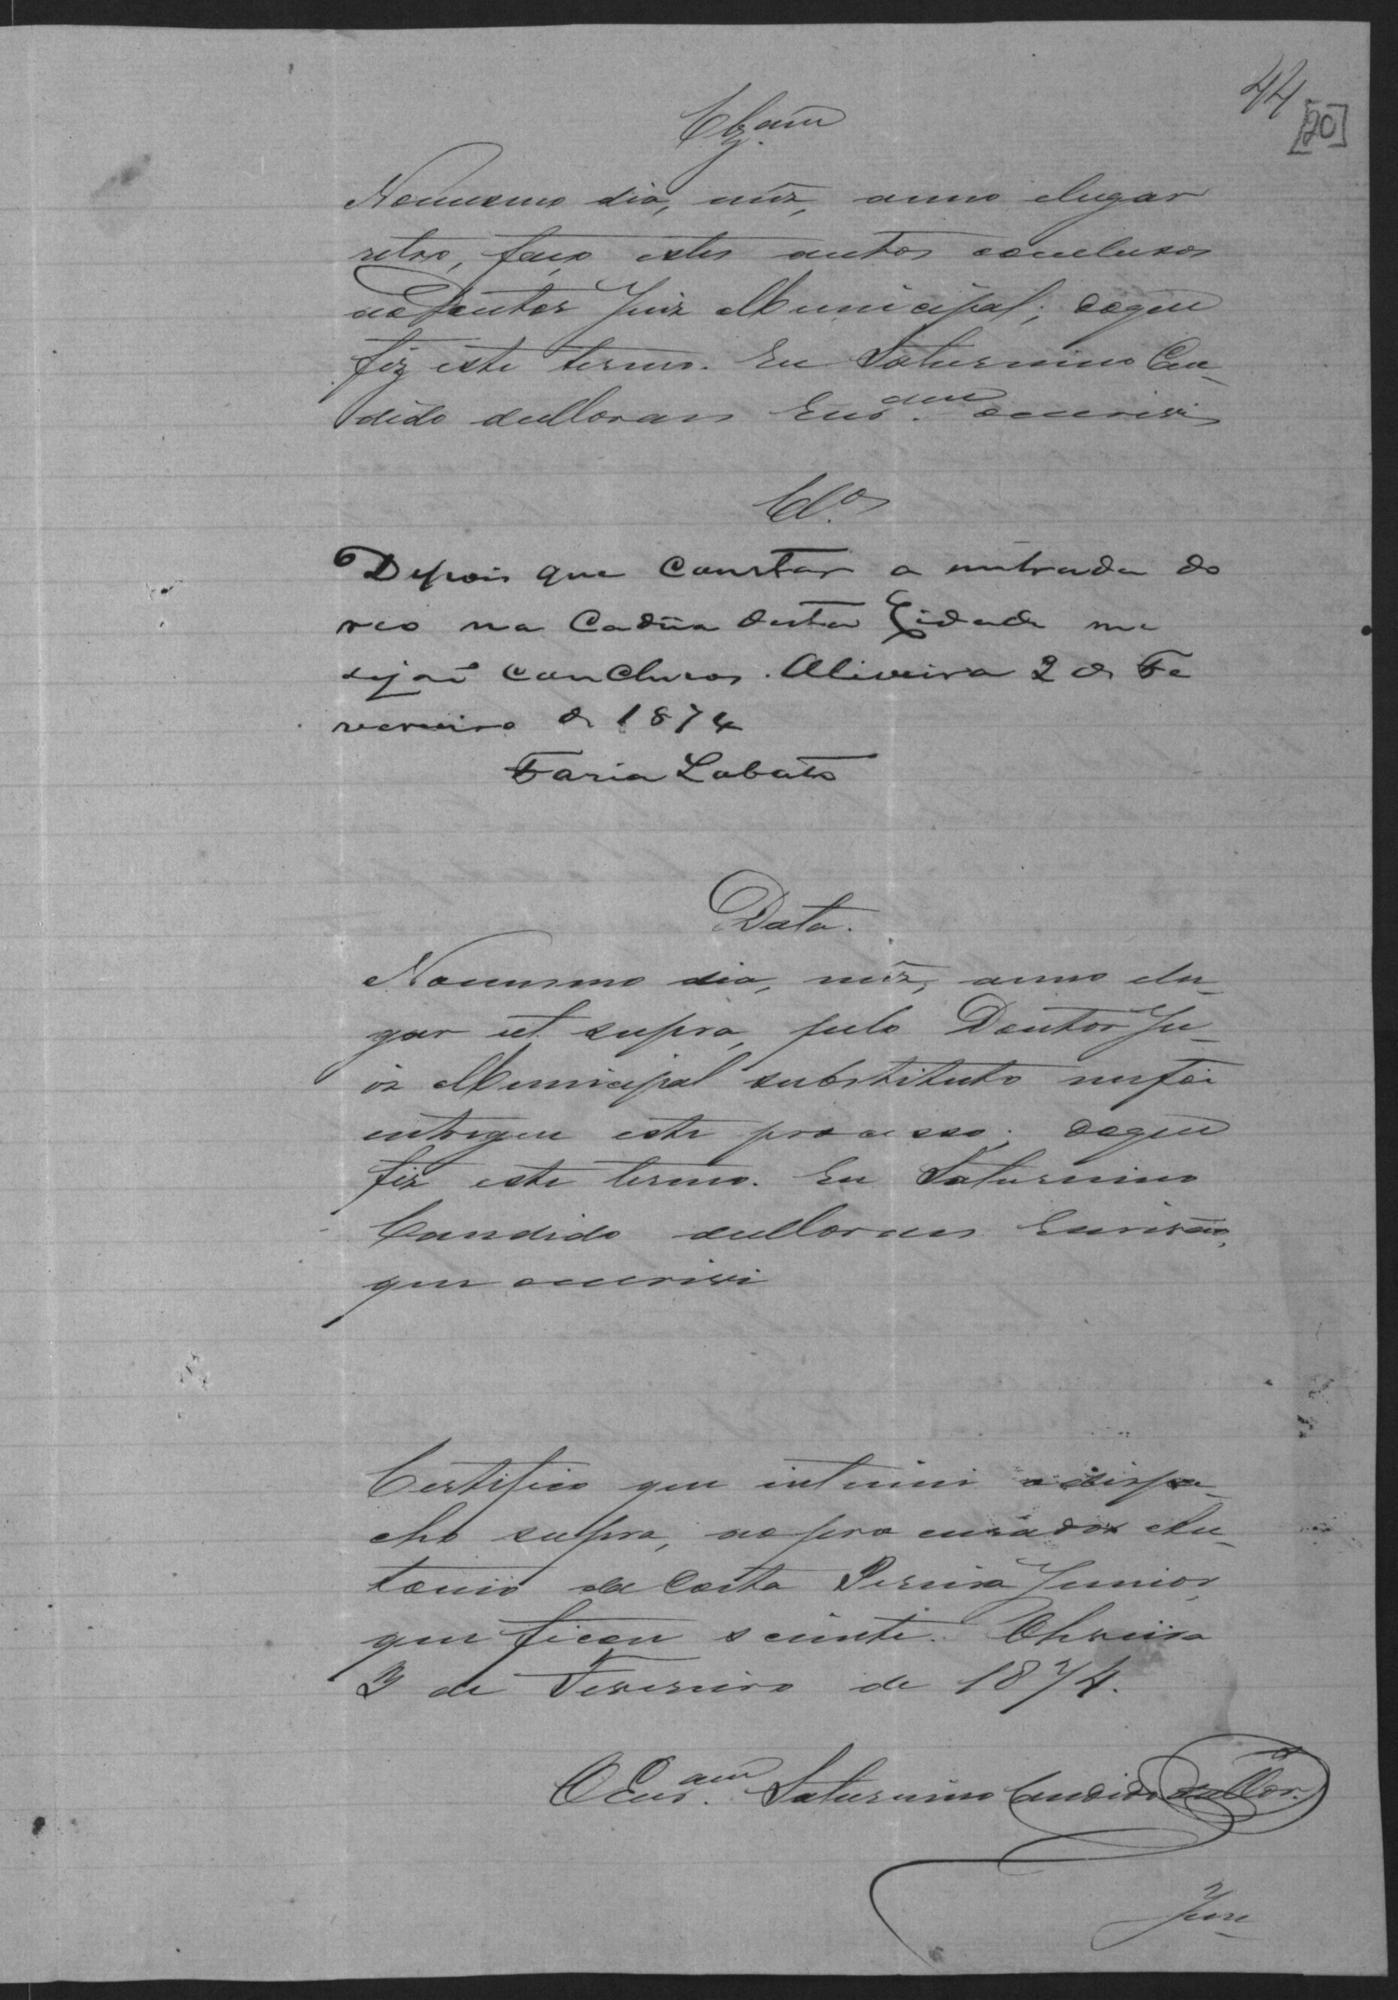 44
[20]
Clzam
No mesmo dia, mez, anno e lugar
retro, faço estes autos conclusos
ao Doutor Juiz Municipal; do que
fiz este termo. Eu Saturnino Can-
dido de Moraes Escr.am o escrevi
Cl.os
Depois que constar a entrada do
reo na Cadêa desta Cidade me
sejaõ conclusos. Oliveira 2 de Fe
vereiro de 1874
Faria Lobato
Data.
No mesmo dia, mez, anno e lu-
gar ut supra, pelo Doutor Ju-
iz Municipal substituto me foi
entregue este processo; do que
fiz este termo. Eu Saturnino
Candido de Moraes Escrivão,
que o escrevi
Certifico que intimei o despa-
cho supra, ao procurador An-
tonio da Costa Pereira Junior,
que ficou sciente. Oliveira
3 de Fevereiro de 1874.
O Escr.am Saturnino Candido de Mor.
Jun